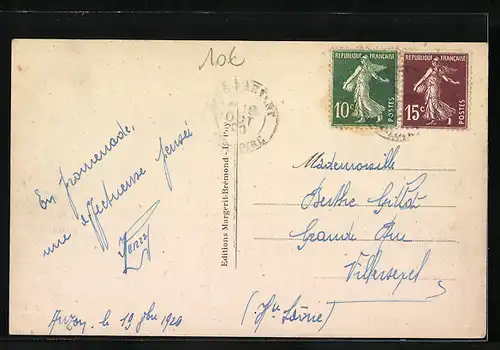 10€
REPUBLIQUE FRANÇAISE
10c
POSTES
REPUBLIQUE FRANÇAISE
15c
POSTES
En promenade,
une affectueuse pensée
Auzon, le 19 9bre 1926
Editions Margerit-Brémond - Le Puy
Mademoiselle
Berthe Gillot
Grande Rue
Villersexel
(Hte Saône)